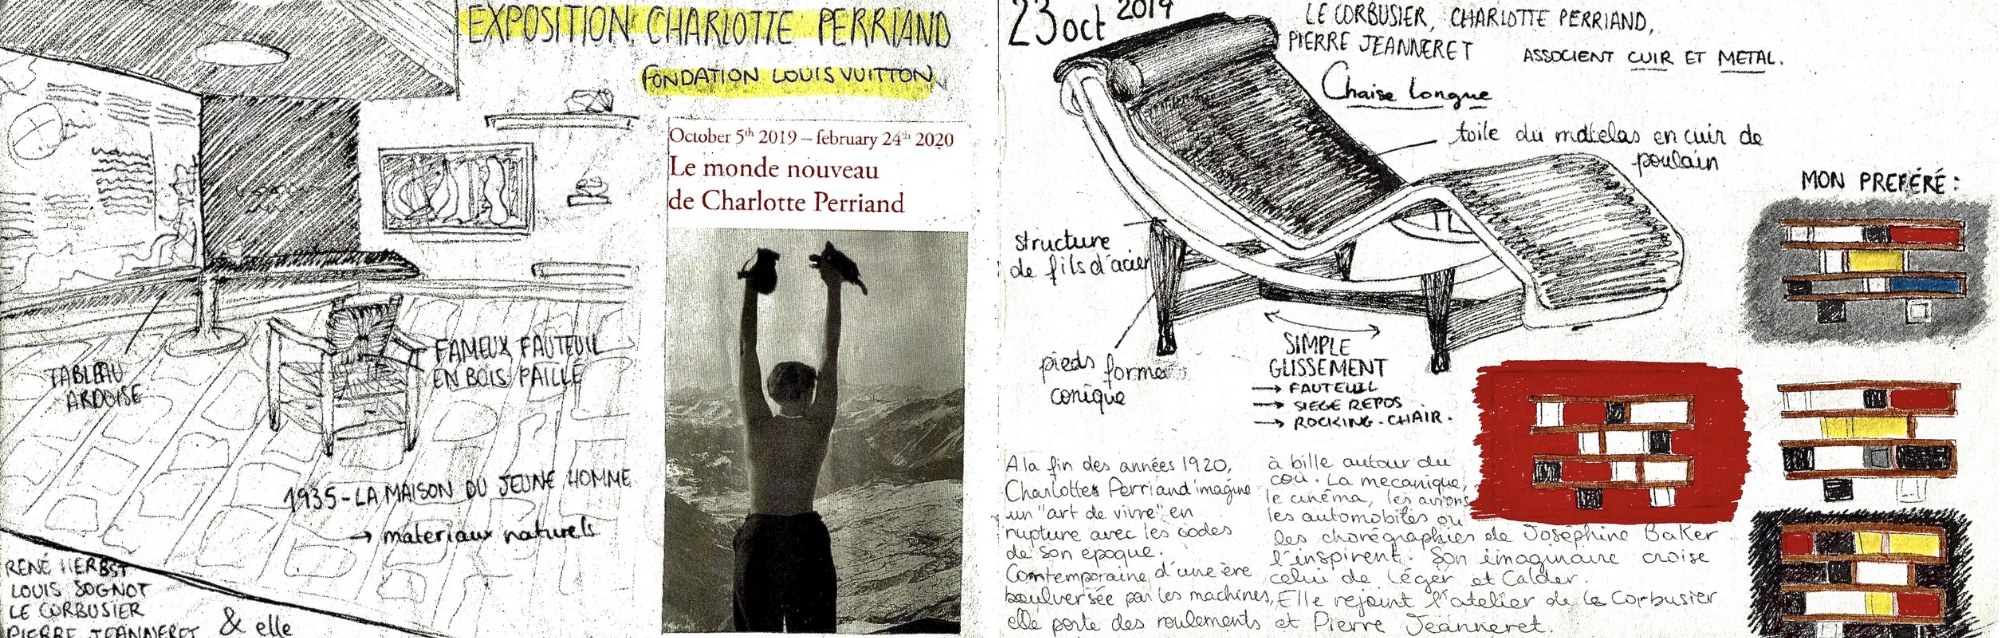 EXPOSITION CHARLOTTE PERRIAND
FONDATION LOUIS VUITTON
October 5th 2019 – february 24th 2020
Le monde nouveau
de Charlotte Perriand
TABLEAU
ARDOISE
FAMEUX FAUTEUIL
EN BOIS PAILLÉ
1935 - LA MAISON DU JEUNE HOMME
→ materiaux naturels
RENÉ HERBST
LOUIS SOGNOT
LE CORBUSIER
PIERRE JEANNERET & elle
23 oct 2019
LE CORBUSIER, CHARLOTTE PERRIAND,
PIERRE JEANNERET ASSOCIENT CUIR ET METAL.
Chaise longue
toile du matelas en cuir de
poulain
structure
de fils d'acier
pieds forme
conique
SIMPLE
GLISSEMENT
→ FAUTEUIL
→ SIEGE REPOS
→ ROCKING-CHAIR.
MON PREFÉRÉ :
A la fin des années 1920,
Charlottes Perriand imagine
un "art de vivre" en
rupture avec les codes
de son epoque.
Contemporaine d'une ère
boulversée par les machines,
elle porte des roulements
à bille autour du
cou. La mecanique,
le cinéma, les avions
les automobiles ou
les chorégraphies de Joséphine Baker
l'inspirent. Son imaginaire croise
celui de Léger et Calder.
Elle rejoint l'atelier de Le Corbusier
et Pierre Jeanneret.